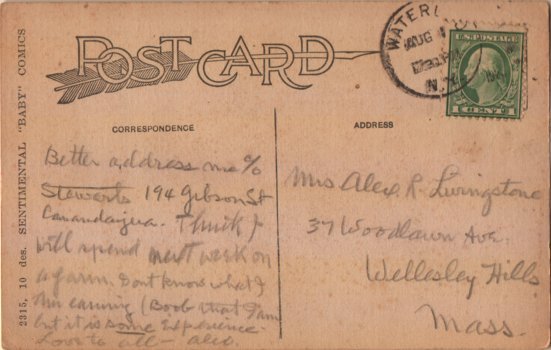 POST CARD
WATERL
AUG 4
N.Y.
U.S. POSTAGE
1 CENT 1
2315, 10 des. SENTIMENTAL "BABY" COMICS
CORRESPONDENCE
Better address me %
Stewarts 194 Gibson St
Canandaigua. Think I
will spend next week on
a farm. Dont know what I
am earning (Boob that I am
but it is some experience.
Love to all - alex.
ADDRESS
Mrs Alex. R. Livingstone
37 Woodlawn Ave.
Wellesley Hills
Mass.